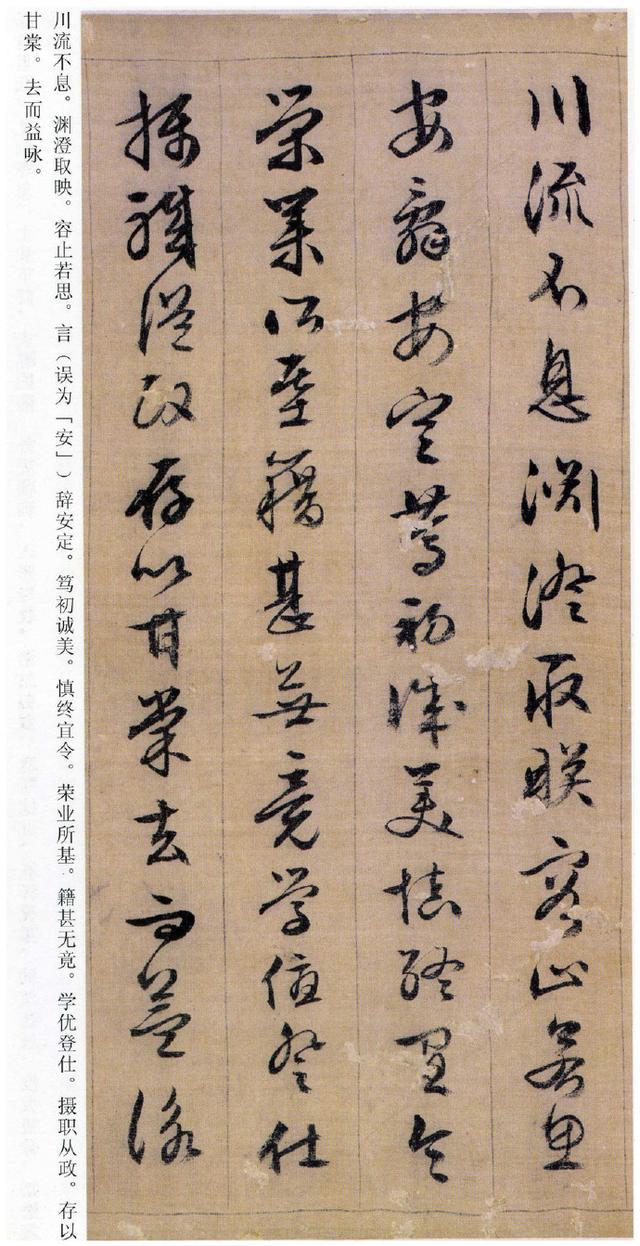 川流不息渊澄取映容止若思
安辞安定笃初诚美慎终宜令
荣业所基籍甚无竟学优登仕
摄职从政存以甘棠去而益咏
川流不息。渊澄取映。容止若思。言（误为「安」）辞安定。笃初诚美。慎终宜令。荣业所基。籍甚无竟。学优登仕。摄职从政。存以
甘棠。去而益咏。